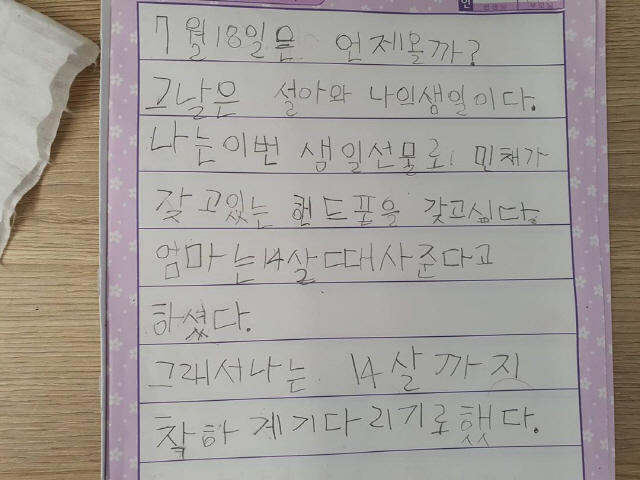 7월18일은 언제올까?
그날은 설아와 나의생일이다.
나는이번 생일선물로 민채가
잦고있는 핸드폰을 갖고싶다.
엄마는14살때사준다고
하셨다.
그래서나는 14살까지
착하게기다리기로했다.